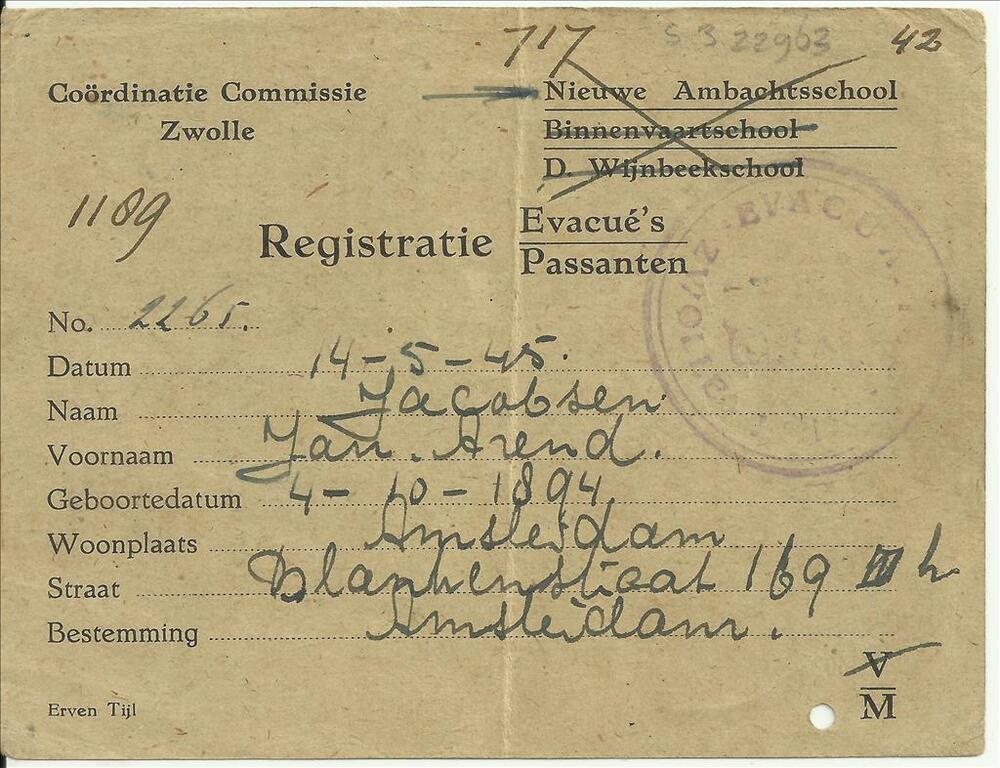 717 S 3 22963 42
Coördinatie Commissie
Zwolle
Nieuwe Ambachtsschool
Binnenvaartschool
D. Wijnbeekschool
1189
Registratie Evacué's
Passanten
No. 2265.
Datum 14-5-45.
Naam Jacobsen
Voornaam Jan. Arend.
Geboortedatum 4-10-1894
Woonplaats Amsterdam
Straat Blankenstraat 169 III h
Bestemming Amsterdam.
V
M
Erven Tijl